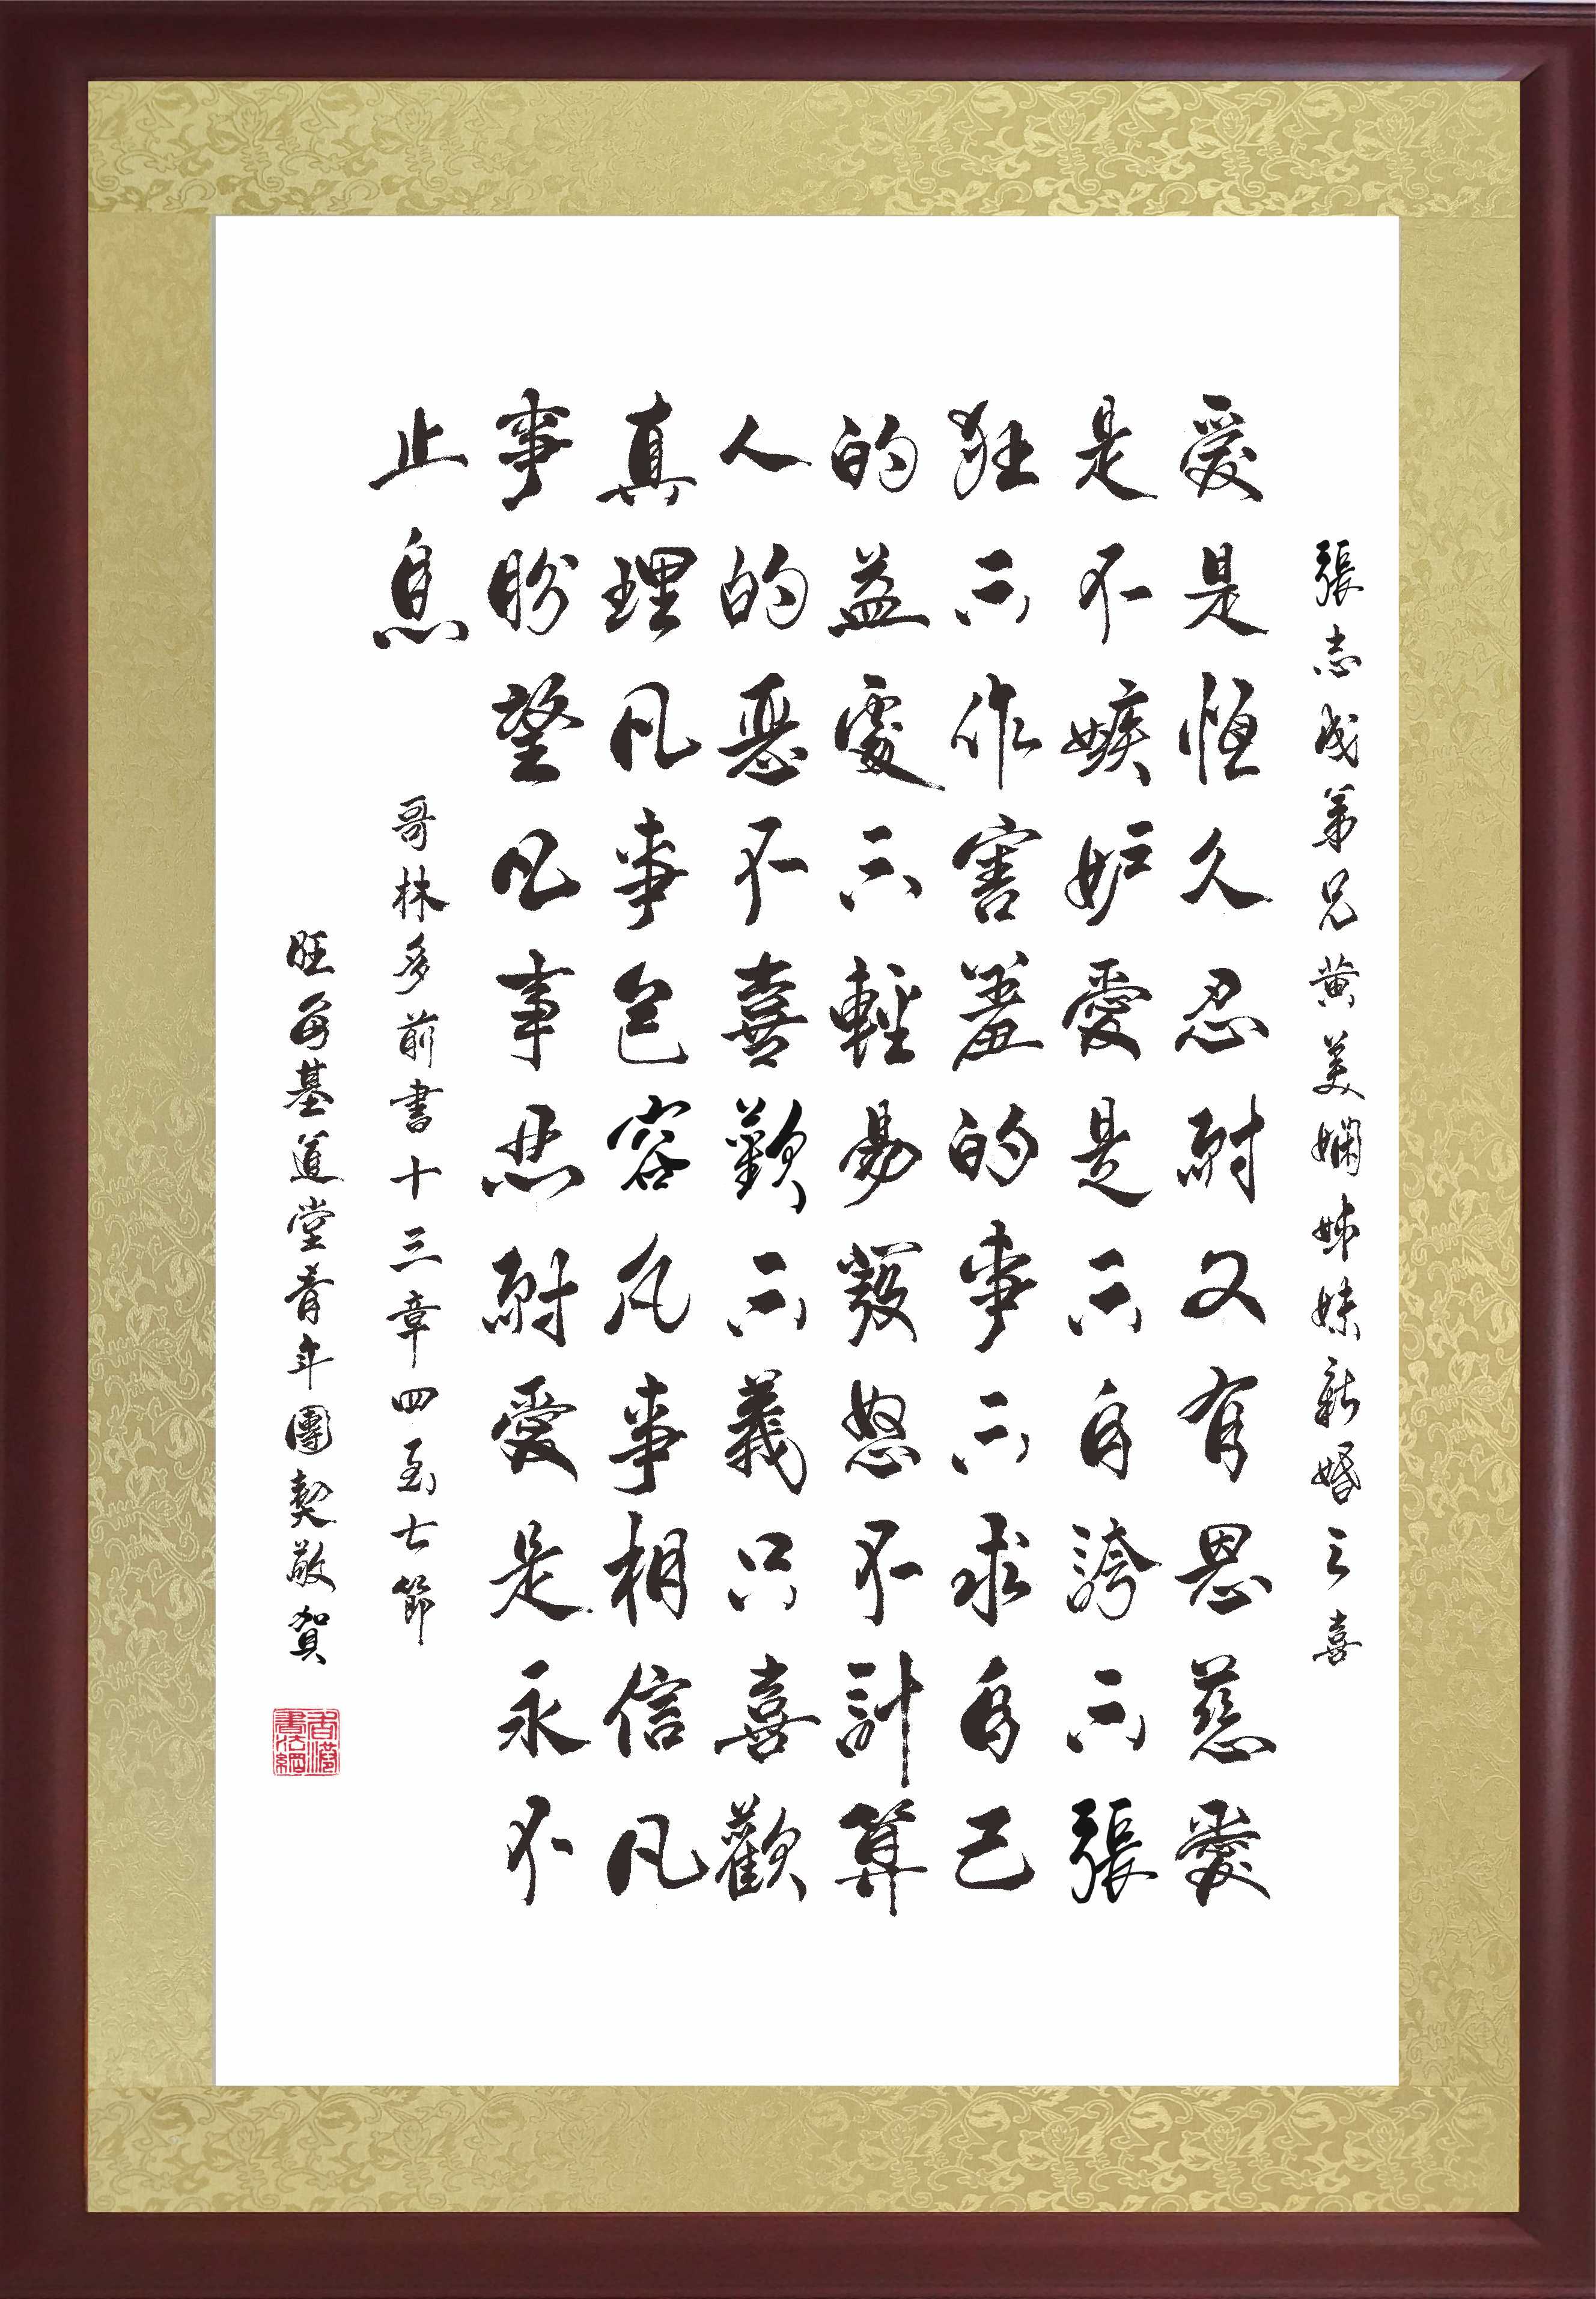 張志成弟兄黃美嫻姊妹新婚之喜
愛是恆久忍耐又有恩慈愛
是不嫉妒愛是不自誇不張
狂不作害羞的事不求自己
的益處不輕易發怒不計算
人的惡不喜歡不義只喜歡
真理凡事包容凡事相信凡
事盼望凡事忍耐愛是永不
止息
哥林多前書十三章四至七節
旺角基道堂青年團契敬賀
香港書法網